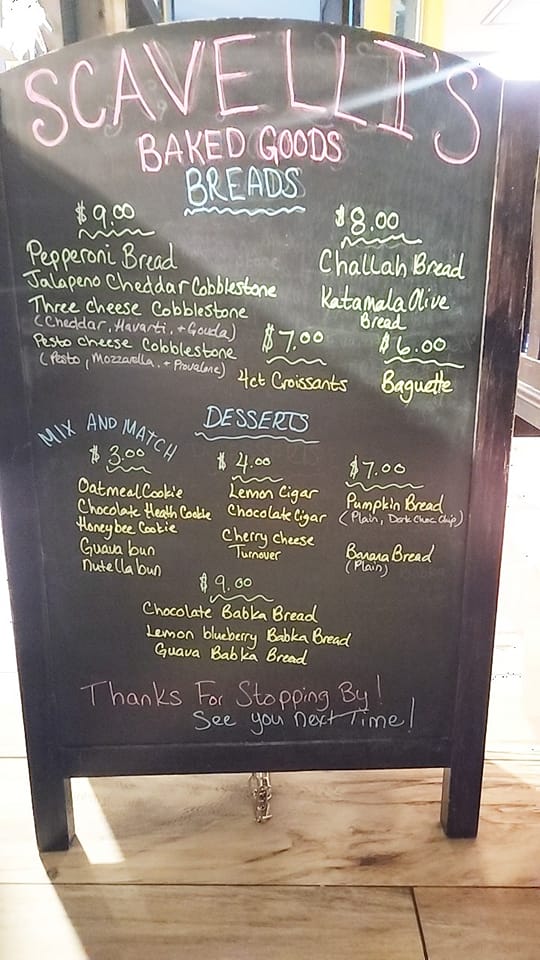 SCAVELLI'S
BAKED GOODS
BREADS
$9.00
Pepperoni Bread
Jalapeno Cheddar Cobblestone
Three cheese Cobblestone
(Cheddar, Havarti, + Gouda)
Pesto cheese Cobblestone
(Pesto, Mozzarella, + Provalone)
$8.00
Challah Bread
Katamala Olive
Bread
$7.00
4ct Croissants
$6.00
Baguette
DESSERTS
MIX AND MATCH
$3.00
Oatmeal Cookie
Chocolate Heath Cookie
Honey bee Cookie
Guava bun
Nutella bun
$4.00
Lemon Cigar
Chocolate Cigar
Cherry cheese
Turnover
$7.00
Pumpkin Bread
(Plain, Dark Choc Chip)
Banana Bread
(Plain)
$9.00
Chocolate Babka Bread
Lemon blueberry Babka Bread
Guava Babka Bread
Thanks For Stopping By!
See you next Time!